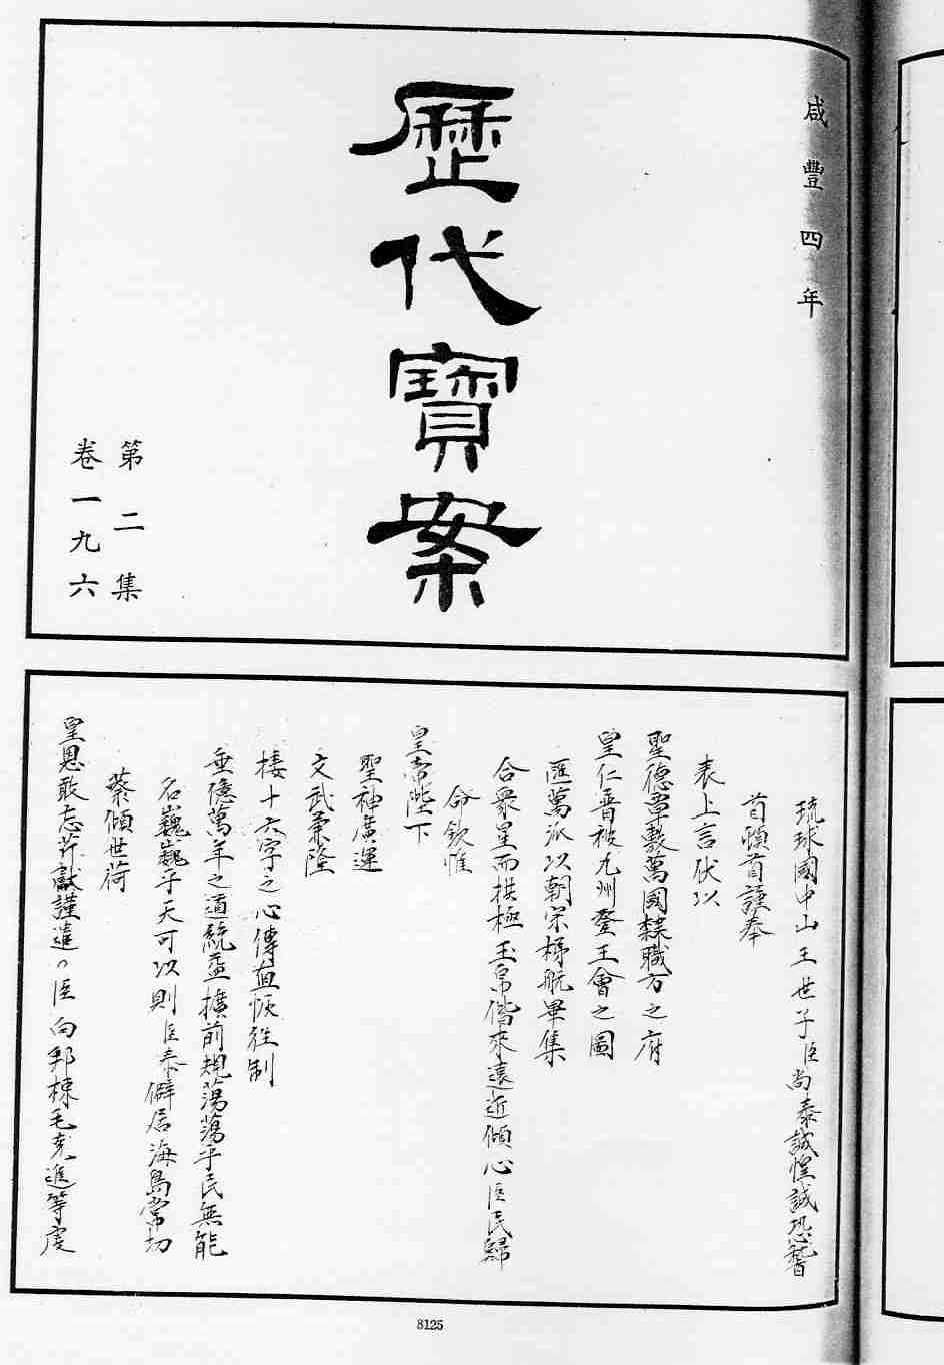 咸豐四年
歷代寶案
第二集
卷一九六
琉球國中山王世子臣尚泰誠惶誠恐稽
首頓首謹奉
表上言伏以
聖德覃敷萬國隸職方之府
皇仁普被九州登王會之圖
匯萬派以朝宗梯航畢集
合衆星而拱極玉帛偕來遠近傾心臣民歸
命欽惟
皇帝陛下
聖神廣運
文武兼隆
接十六字之心傳直恢往制
垂億萬年之道統益擴前規蕩蕩乎民無能
名巍巍乎天可以則臣泰僻居海島常切
葵傾世荷
皇恩敢忘芹獻謹遣陪臣向邦棟毛克進等虔
8125